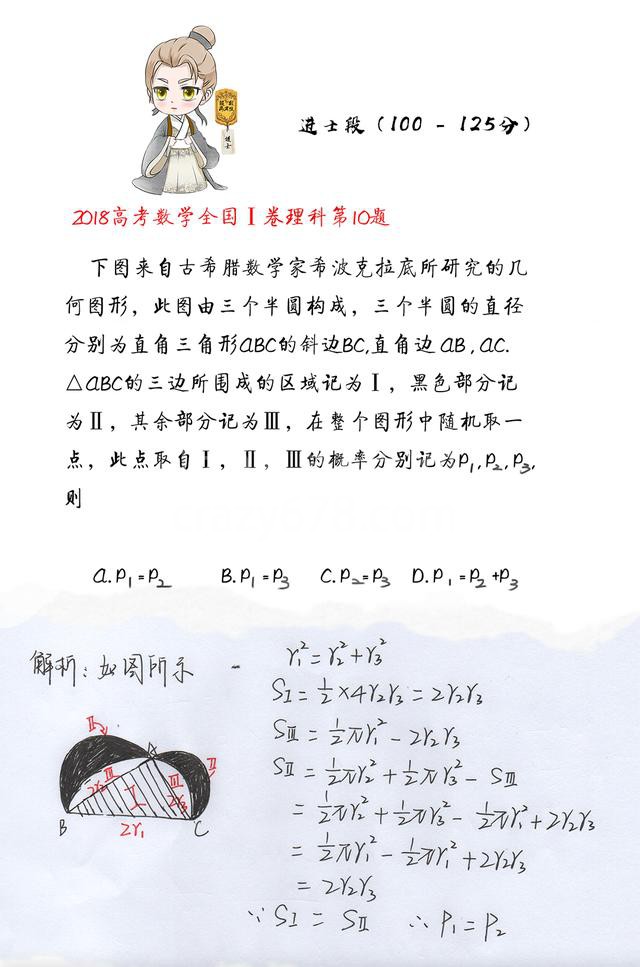 进士段（100 - 125分）
进士
2018高考数学全国Ⅰ卷理科第10题
下图来自古希腊数学家希波克拉底所研究的几
何图形，此图由三个半圆构成，三个半圆的直径
分别为直角三角形ABC的斜边BC,直角边 AB , AC.
△ABC的三边所围成的区域记为Ⅰ，黑色部分记
为Ⅱ，其余部分记为Ⅲ，在整个图形中随机取一
点，此点取自Ⅰ，Ⅱ，Ⅲ的概率分别记为P₁,P₂,P₃,
则
A.P₁=P₂ B.P₁=P₃ C.P₂=P₃ D.P₁=P₂+P₃
解析：如图所示
r₁²=r₂²+r₃²
SⅠ=½×4r₂r₃=2r₂r₃
SⅢ=½πr₁²-2r₂r₃
SⅡ=½πr₂²+½πr₃²-SⅢ
=½πr₂²+½πr₃²-½πr₁²+2r₂r₃
=½πr₁²-½πr₁²+2r₂r₃
=2r₂r₃
∵SⅠ=SⅡ ∴P₁=P₂
Ⅱ
A
Ⅲ
Ⅲ
Ⅱ
2r₂
Ⅰ
2r₃
B
2r₁
C